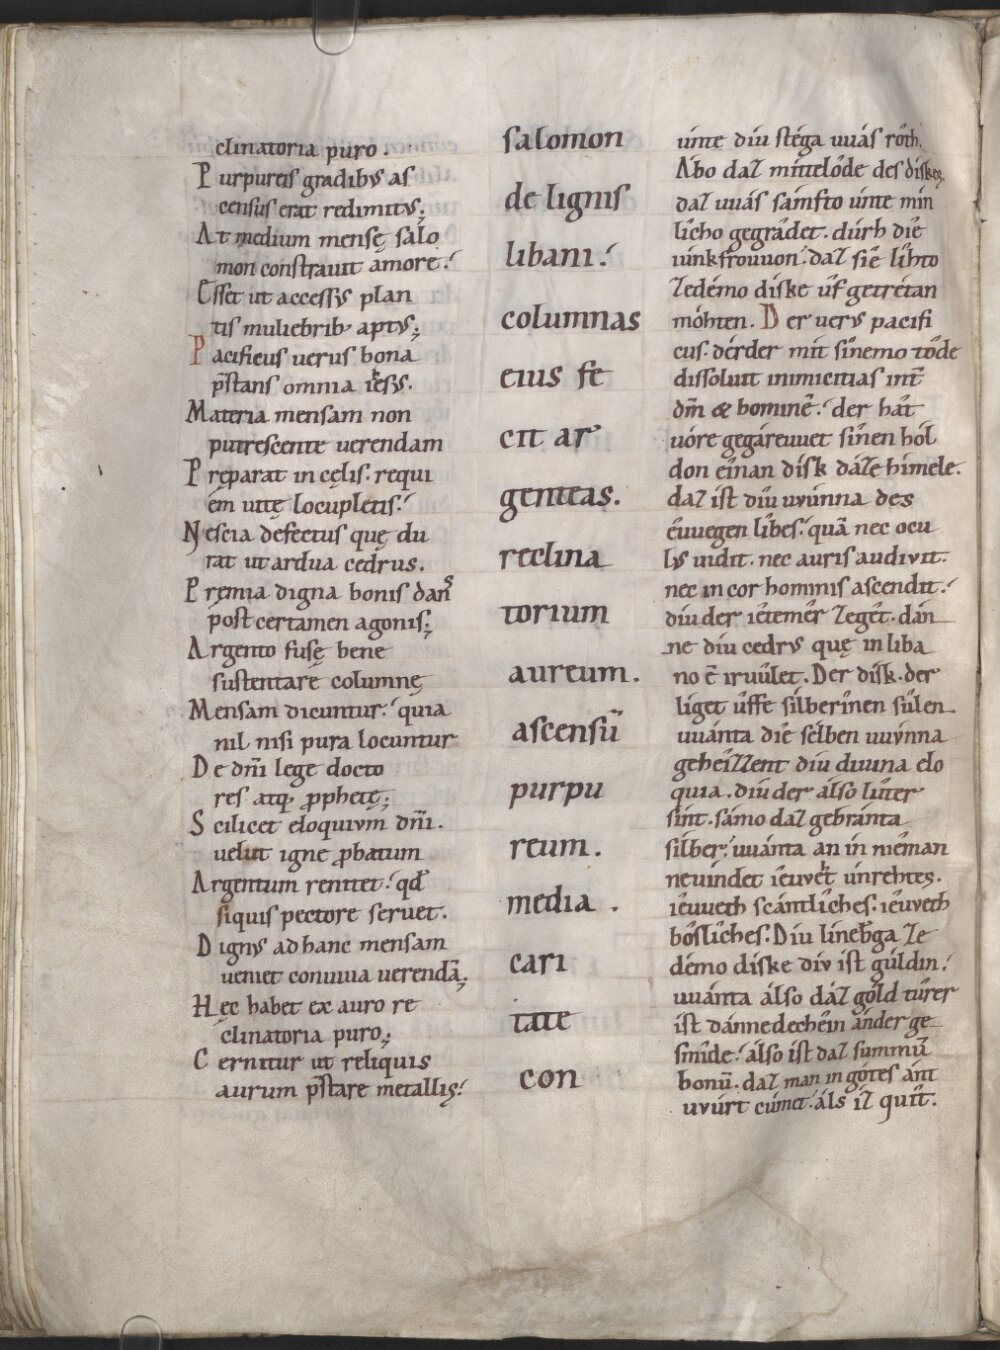 clinatoria puro.
Purpureis gradibus as
census erat redimitus;
At medium mensę salo
mon constravit amore.
Esset ut accessus plan
tis muliebrib; aptus;
Pacificus uerus bona
p̄stans omnia iesus.
Materia mensam non
putrescente uerendam
Pręparat in cęlis. requi
em uitę locupletis.
Nescia defectus quę du
rat ut ardua cedrus.
Premia digna bonis dans̄
post certamen agonis;
Argento fusę bene
sustentare columnę
Mensam dicuntur. quia
nil nisi pura locuntur
De dn̄i lege docto
res atq; ꝓphetę;
Scilicet eloquium dn̄i.
uelut igne ꝓbatum
Argentum renitet. qđ
siquis pectore seruet.
Dignus ad hanc mensam
ueniet conuiua uerendā;
Hęc habet ex auro re
clinatoria puro;
Cernitur ut reliquis
aurum p̄stare metallis.
salomon
de lignis
libani.
columnas
eius fe
cit ar
genteas.
reclina
torium
aureum.
ascensū
purpu
reum.
media.
cari
tate
con
únte diu stéga uuás rôth.
Abo daz míttelôde des dískes.
daz uuás sámfto únte mín
lîcho gegrâdet. dúrh dîe
iúnkfrouuon. daz sîe lîhto
zedémo díske ûf getrétan
móhten. Der uerus pacifi
cus. dérder mít sînemo tôde
dissoluit inimicitias int̄
dm̄ & hominē. der hât
uóre gegáreuuet sînen hól
don eînan dísk dáze hímele.
daz ist díu vvúnna des
êuuegen lîbes. quā nec ocu
lus uidit. nec auris audivit.
nec in cor hominis ascendit.
díu der iêtemêr zegêt. dán
ne díu cedrus quę in liba
no ē iruûlet. Der dísk. der
líget ûffe sílberînen sûlen
uuánta dîe sélben uuýnna
geheîzzent díu diuina elo
quia. díu der álso lûter
sínt. sámo daz gebránta
sílber. uuánta an in nîeman
neuíndet îeuuet únrehtes.
îeuueth scántlîches. îeuueth
bôslîches. Díu línebęga ze
démo díske díu íst gúldin.
uuánta álso dáz góld tûrer
íst dánnedecheîn ánder ge
smîde. álso íst daz summū
bonū. daz man in gótes ánt
uvúrt cúmet. áls iz quît.